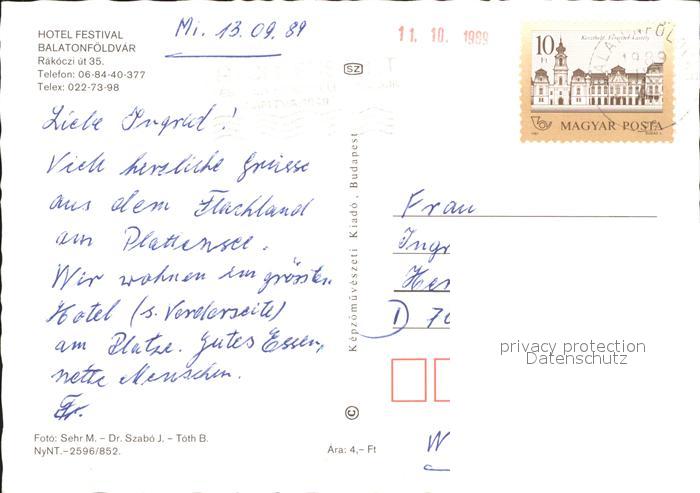 HOTEL FESTIVAL
BALATONFÖLDVÁR
Rákóczi út 35.
Telefon: 06-84-40-377
Telex: 022-73-98
Mi. 13.09.89
Liebe Ingrid!
Viele herzliche Grüsse
aus dem Flachland
am Plattensee.
Wir wohnen im grössten
Hotel (s. Vorderseite)
am Platze. Gutes Essen,
nette Menschen.
Fotó: Sehr M. – Dr. Szabó J. – Tóth B.
NyNT.–2596/852.
Ára: 4,– Ft
SZ
Képzőművészeti Kiadó, Budapest
©
11. 10. 1989
10
Keszthely, Festetics-kastély
MAGYAR POSTA
Frau
Ingr
Her
D 70
W
privacy protection
Datenschutz